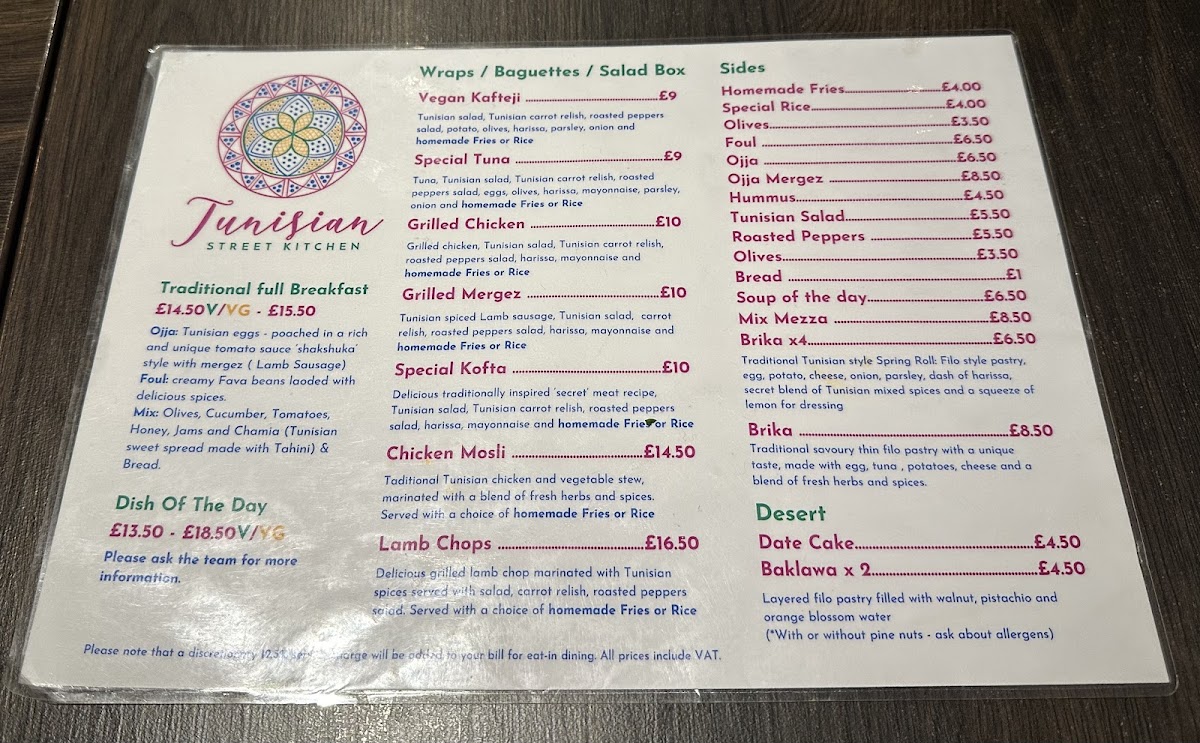 Tunisian
STREET KITCHEN
Traditional full Breakfast
£14.50V/VG - £15.50
Ojja: Tunisian eggs - poached in a rich
and unique tomato sauce 'shakshuka'
style with mergez ( Lamb Sausage)
Foul: creamy Fava beans laoded with
delicious spices.
Mix: Olives, Cucumber, Tomatoes,
Honey, Jams and Chamia (Tunisian
sweet spread made with Tahini) &
Bread.
Dish Of The Day
£13.50 - £18.50V/VG
Please ask the team for more
information.
Wraps / Baguettes / Salad Box
Vegan Kafteji ........................................£9
Tunisian salad, Tunisian carrot relish, roasted peppers
salad, potato, olives, harissa, parsley, onion and
homemade Fries or Rice
Special Tuna ........................................£9
Tuna, Tunisian salad, Tunisian carrot relish, roasted
peppers salad, eggs, olives, harissa, mayonnaise, parsley,
onion and homemade Fries or Rice
Grilled Chicken ........................................£10
Grilled chicken, Tunisian salad, Tunisian carrot relish,
roasted peppers salad, harissa, mayonnaise and
homemade Fries or Rice
Grilled Mergez ........................................£10
Tunisian spiced Lamb sausage, Tunisian salad, carrot
relish, roasted peppers salad, harissa, mayonnaise and
homemade Fries or Rice
Special Kofta ........................................£10
Delicious traditionally inspired 'secret' meat recipe,
Tunisian salad, Tunisian carrot relish, roasted peppers
salad, harissa, mayonnaise and homemade Fries or Rice
Chicken Mosli ........................................£14.50
Taditional Tunisian chicken and vegetable stew,
marinated with a blend of fresh herbs and spices.
Served with a choice of homemade Fries or Rice
Lamb Chops ........................................£16.50
Delicious grilled lamb chop marinated with Tunisian
spices served with salad, carrot relish, roasted peppers
salad. Served with a choice of homemade Fries or Rice
Sides
Homemade Fries........................£4.00
Special Rice........................£4.00
Olives........................£3.50
Foul ........................£6.50
Ojja ........................£6.50
Ojja Mergez ........................£8.50
Hummus........................£4.50
Tunisian Salad........................£5.50
Roasted Peppers ........................£5.50
Olives........................£3.50
Bread ........................£1
Soup of the day........................£6.50
Mix Mezza ........................£8.50
Brika x4........................£6.50
Traditional Tunisian style Spring Roll: Filo style pastry,
egg, potato, cheese, onion, parsley, dash of harissa,
secret blend of Tunisian mixed spices and a squeeze of
lemon for dressing
Brika ........................£8.50
Traditional savoury thin filo pastry with a unique
taste, made with egg, tuna , potatoes, cheese and a
blend of fresh herbs and spices.
Desert
Date Cake........................£4.50
Baklawa x 2........................£4.50
Layered filo pastry filled with walnut, pistachio and
orange blossom water
(*With or without pine nuts - ask about allergens)
Please note that a discretionary 12.5% charge will be added to your bill for eat-in dining. All prices include VAT.